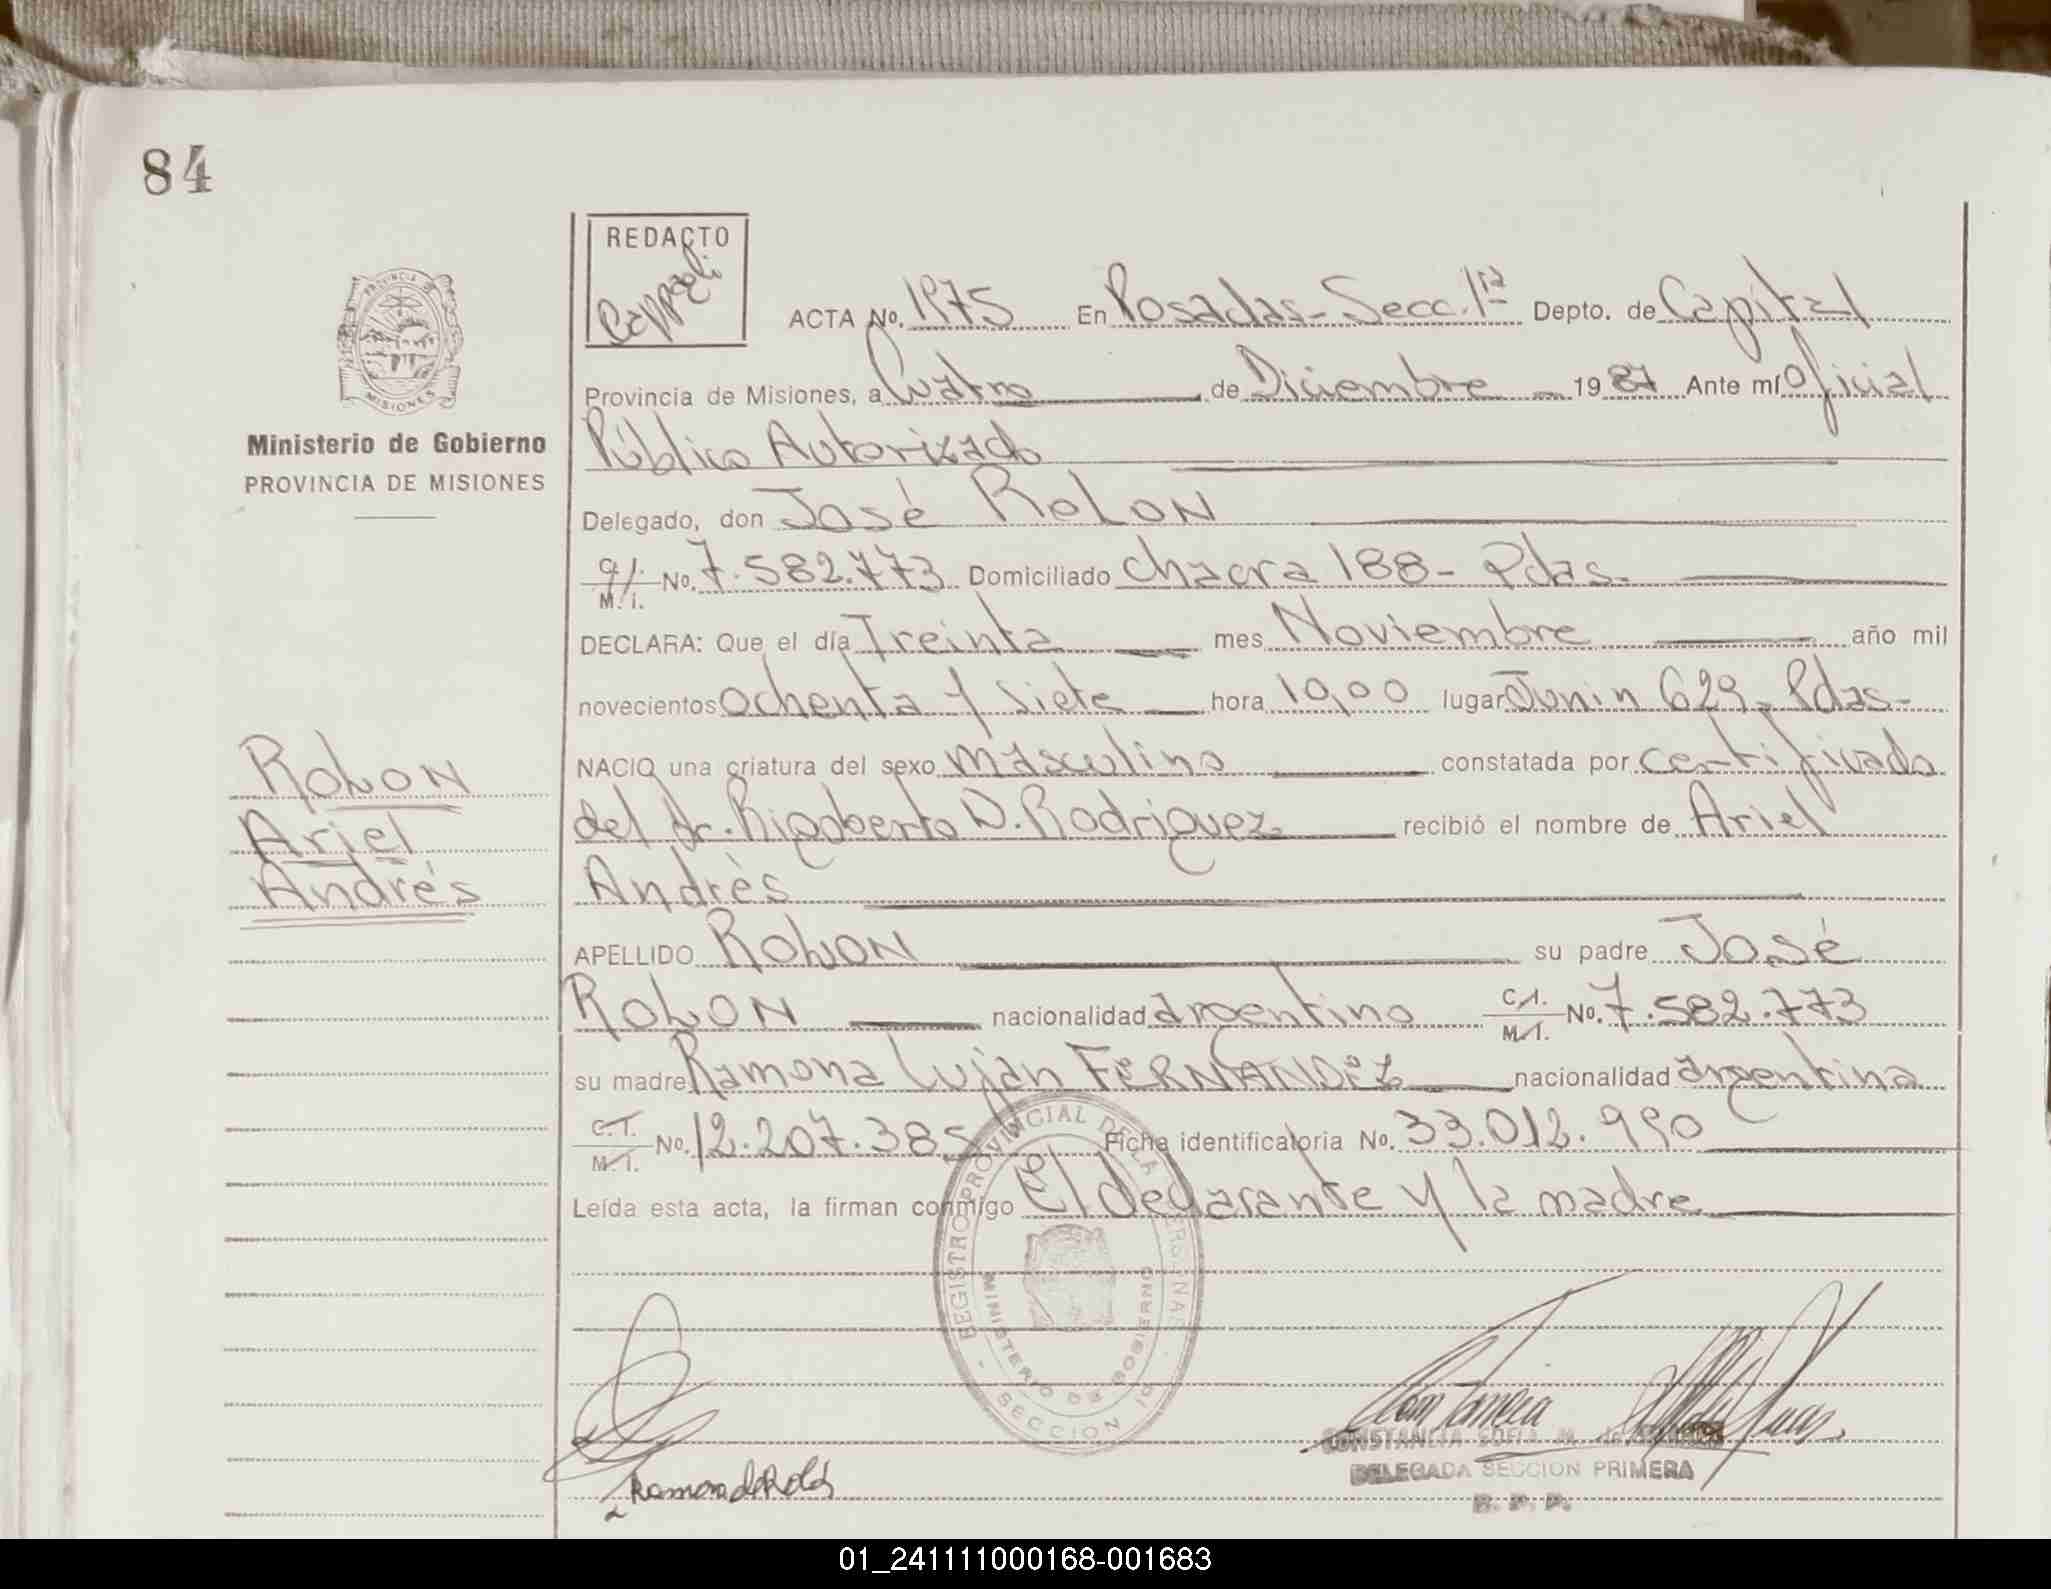 84
REDACTO
Cappali
PROVINCIA DE
MISIONES
Ministerio de Gobierno
PROVINCIA DE MISIONES
ACTA No. 1975 En Posadas-Secc. 1ª Depto. de Capital
Provincia de Misiones, a Cuatro de Diciembre 1987 Ante mí Oficial
Público Autorizado
Delegado, don José ROLON
C.I. M.I. No. 7.582.773 Domiciliado chacra 188- Pdas.
DECLARA: Que el día Treinta mes Noviembre año mil
novecientos ochenta y siete hora 10,00 lugar Junin 629- Pdas-
NACIO una criatura del sexo masculino constatada por certificado
del dr. Rigoberto D. Rodriguez recibió el nombre de Ariel
Andrés
APELLIDO ROLON su padre José
ROLON nacionalidad argentino C.I. M.I. No. 7.582.773
su madre Ramona Luján FERNANDEZ nacionalidad argentina
C.I. M.I. No. 12.207.385 Ficha identificatoria No. 33.012.990
Leída esta acta, la firman conmigo El declarante y la madre
ROLON
Ariel
Andrés
REGISTRO PROVINCIAL DE LAS PERSONAS
MINISTERIO DE GOBIERNO
SECCION
CONSTANCIA SOFIA M.
DELEGADA SECCION PRIMERA
R. P. P.
01_241111000168-001683